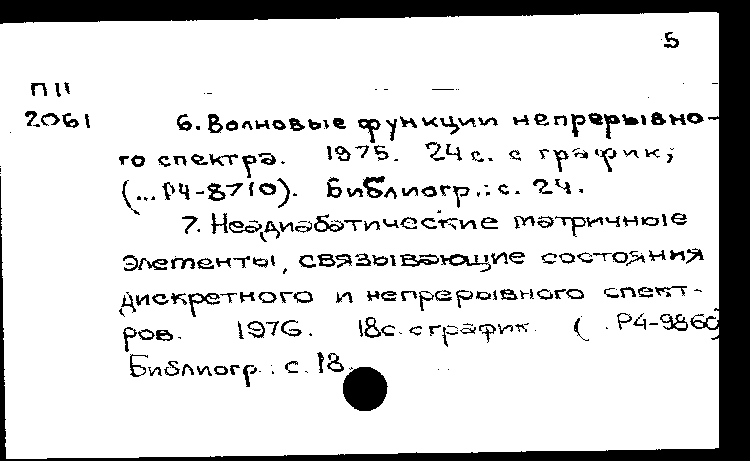 5
П11
2061 6. Волновые функции непрерывно-
го спектра. 1975. 24 с. с график;
(...Р4-8710). Библиогр.: с. 24.
7. Неадиабатические матричные
элементы, связывающие состояния
дискретного и непрерывного спект-
ров. 1976. 18с. с график. ( . Р4-9860)
Библиогр.: с. 18.